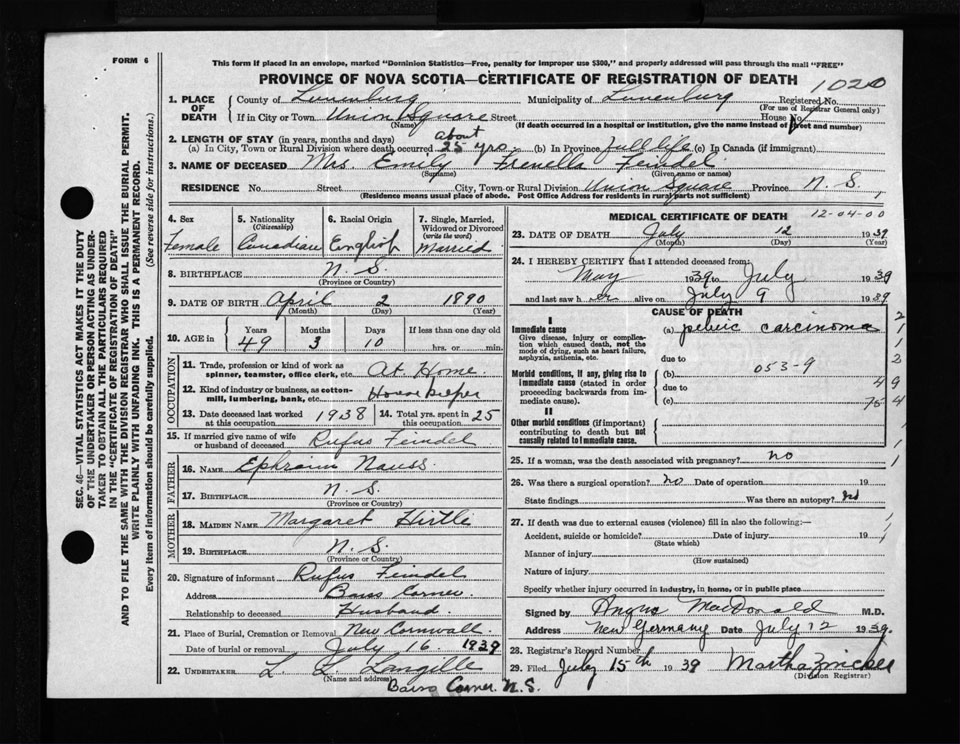 FORM 6
This form if placed in an envelope, marked "Dominion Statistics—Free, penalty for improper use $300," and properly addressed will pass through the mail "FREE"
PROVINCE OF NOVA SCOTIA—CERTIFICATE OF REGISTRATION OF DEATH
1020
1. PLACE OF DEATH
County of Lunenburg Municipality of Lunenburg Registered No.
(For use of Registrar General only)
If in City or Town Union Square Street House No.
(Name) (If death occurred in a hospital or institution, give the name instead of street and number)
2. LENGTH OF STAY (in years, months and days)
(a) In City, Town or Rural Division where death occurred about 25 yrs. (b) In Province full life (c) In Canada (if immigrant)
3. NAME OF DECEASED Mrs. Emily Feindel
(Surname) (Given name or names)
RESIDENCE No. Street City, Town or Rural Division Union Square Province N. S.
(Residence means usual place of abode. Post Office Address for residents in rural parts not sufficient)
1
4. Sex Female
5. Nationality (Citizenship) Canadian
6. Racial Origin English
7. Single, Married, Widowed or Divorced (write the word) Married
8. BIRTHPLACE N. S.
(Province or Country)
9. DATE OF BIRTH April 2 1890
(Month) (Day) (Year)
10. AGE in Years 49 Months 3 Days 10 If less than one day old hrs. or min.
OCCUPATION
11. Trade, profession or kind of work as spinner, teamster, office clerk, etc. At Home.
12. Kind of industry or business, as cotton-mill, lumbering, bank, etc. Housekeeper
13. Date deceased last worked at this occupation 1938
14. Total yrs. spent in this occupation 25
15. If married give name of wife or husband of deceased Rufus Feindel
FATHER
16. NAME Ephraim Nauss
17. BIRTHPLACE N. S.
(Province or Country)
MOTHER
18. MAIDEN NAME Margaret Hirtle
19. BIRTHPLACE N. S.
(Province or Country)
20. Signature of informant Rufus Feindel
Address Barss Corner
Relationship to deceased Husband.
21. Place of Burial, Cremation or Removal New Cornwall
Date of burial or removal July 16 1939
22. UNDERTAKER L. L. Langille
(Name and address)
Barss Corner. N. S.
MEDICAL CERTIFICATE OF DEATH 12-04-00
23. DATE OF DEATH July 12 1939
(Month) (Day) (Year)
24. I HEREBY CERTIFY that I attended deceased from:
May 1939 to July 1939
and last saw her alive on July 9 1939
CAUSE OF DEATH
I
Immediate cause (a) pelvic carcinoma
Give disease, injury or complication which caused death, not the mode of dying, such as heart failure, asphyxia, asthenia, etc.
due to
Morbid conditions, if any, giving rise to immediate cause (stated in order proceeding backwards from immediate cause).
(b) 053-9
due to
(c)
II
Other morbid conditions (if important) contributing to death but not causally related to immediate cause.
2
1
1
2
49
754
1
1
25. If a woman, was the death associated with pregnancy? no
26. Was there a surgical operation? no Date of operation 19
State findings Was there an autopsy? no
27. If death was due to external causes (violence) fill in also the following:—
Accident, suicide or homicide? Date of injury 19
(State which)
Manner of injury
(How sustained)
Nature of injury
Specify whether injury occurred in industry, in home, or in public place
Signed by Angus MacDonald M.D.
Address New Germany Date July 12 1939.
28. Registrar's Record Number
29. Filed July 15th 1939 Martha Zwicker
(Division Registrar)
SEC. 46—VITAL STATISTICS ACT MAKES IT THE DUTY
OF THE UNDERTAKER OR PERSON ACTING AS UNDER-
TAKER TO OBTAIN ALL THE PARTICULARS REQUIRED
IN THE "CERTIFICATE OF REGISTRATION OF DEATH"
AND TO FILE THE SAME WITH THE DIVISION REGISTRAR WHO SHALL ISSUE THE BURIAL PERMIT.
WRITE PLAINLY WITH UNFADING INK. THIS IS A PERMANENT RECORD.
Every item of information should be carefully supplied. (See reverse side for instructions.)